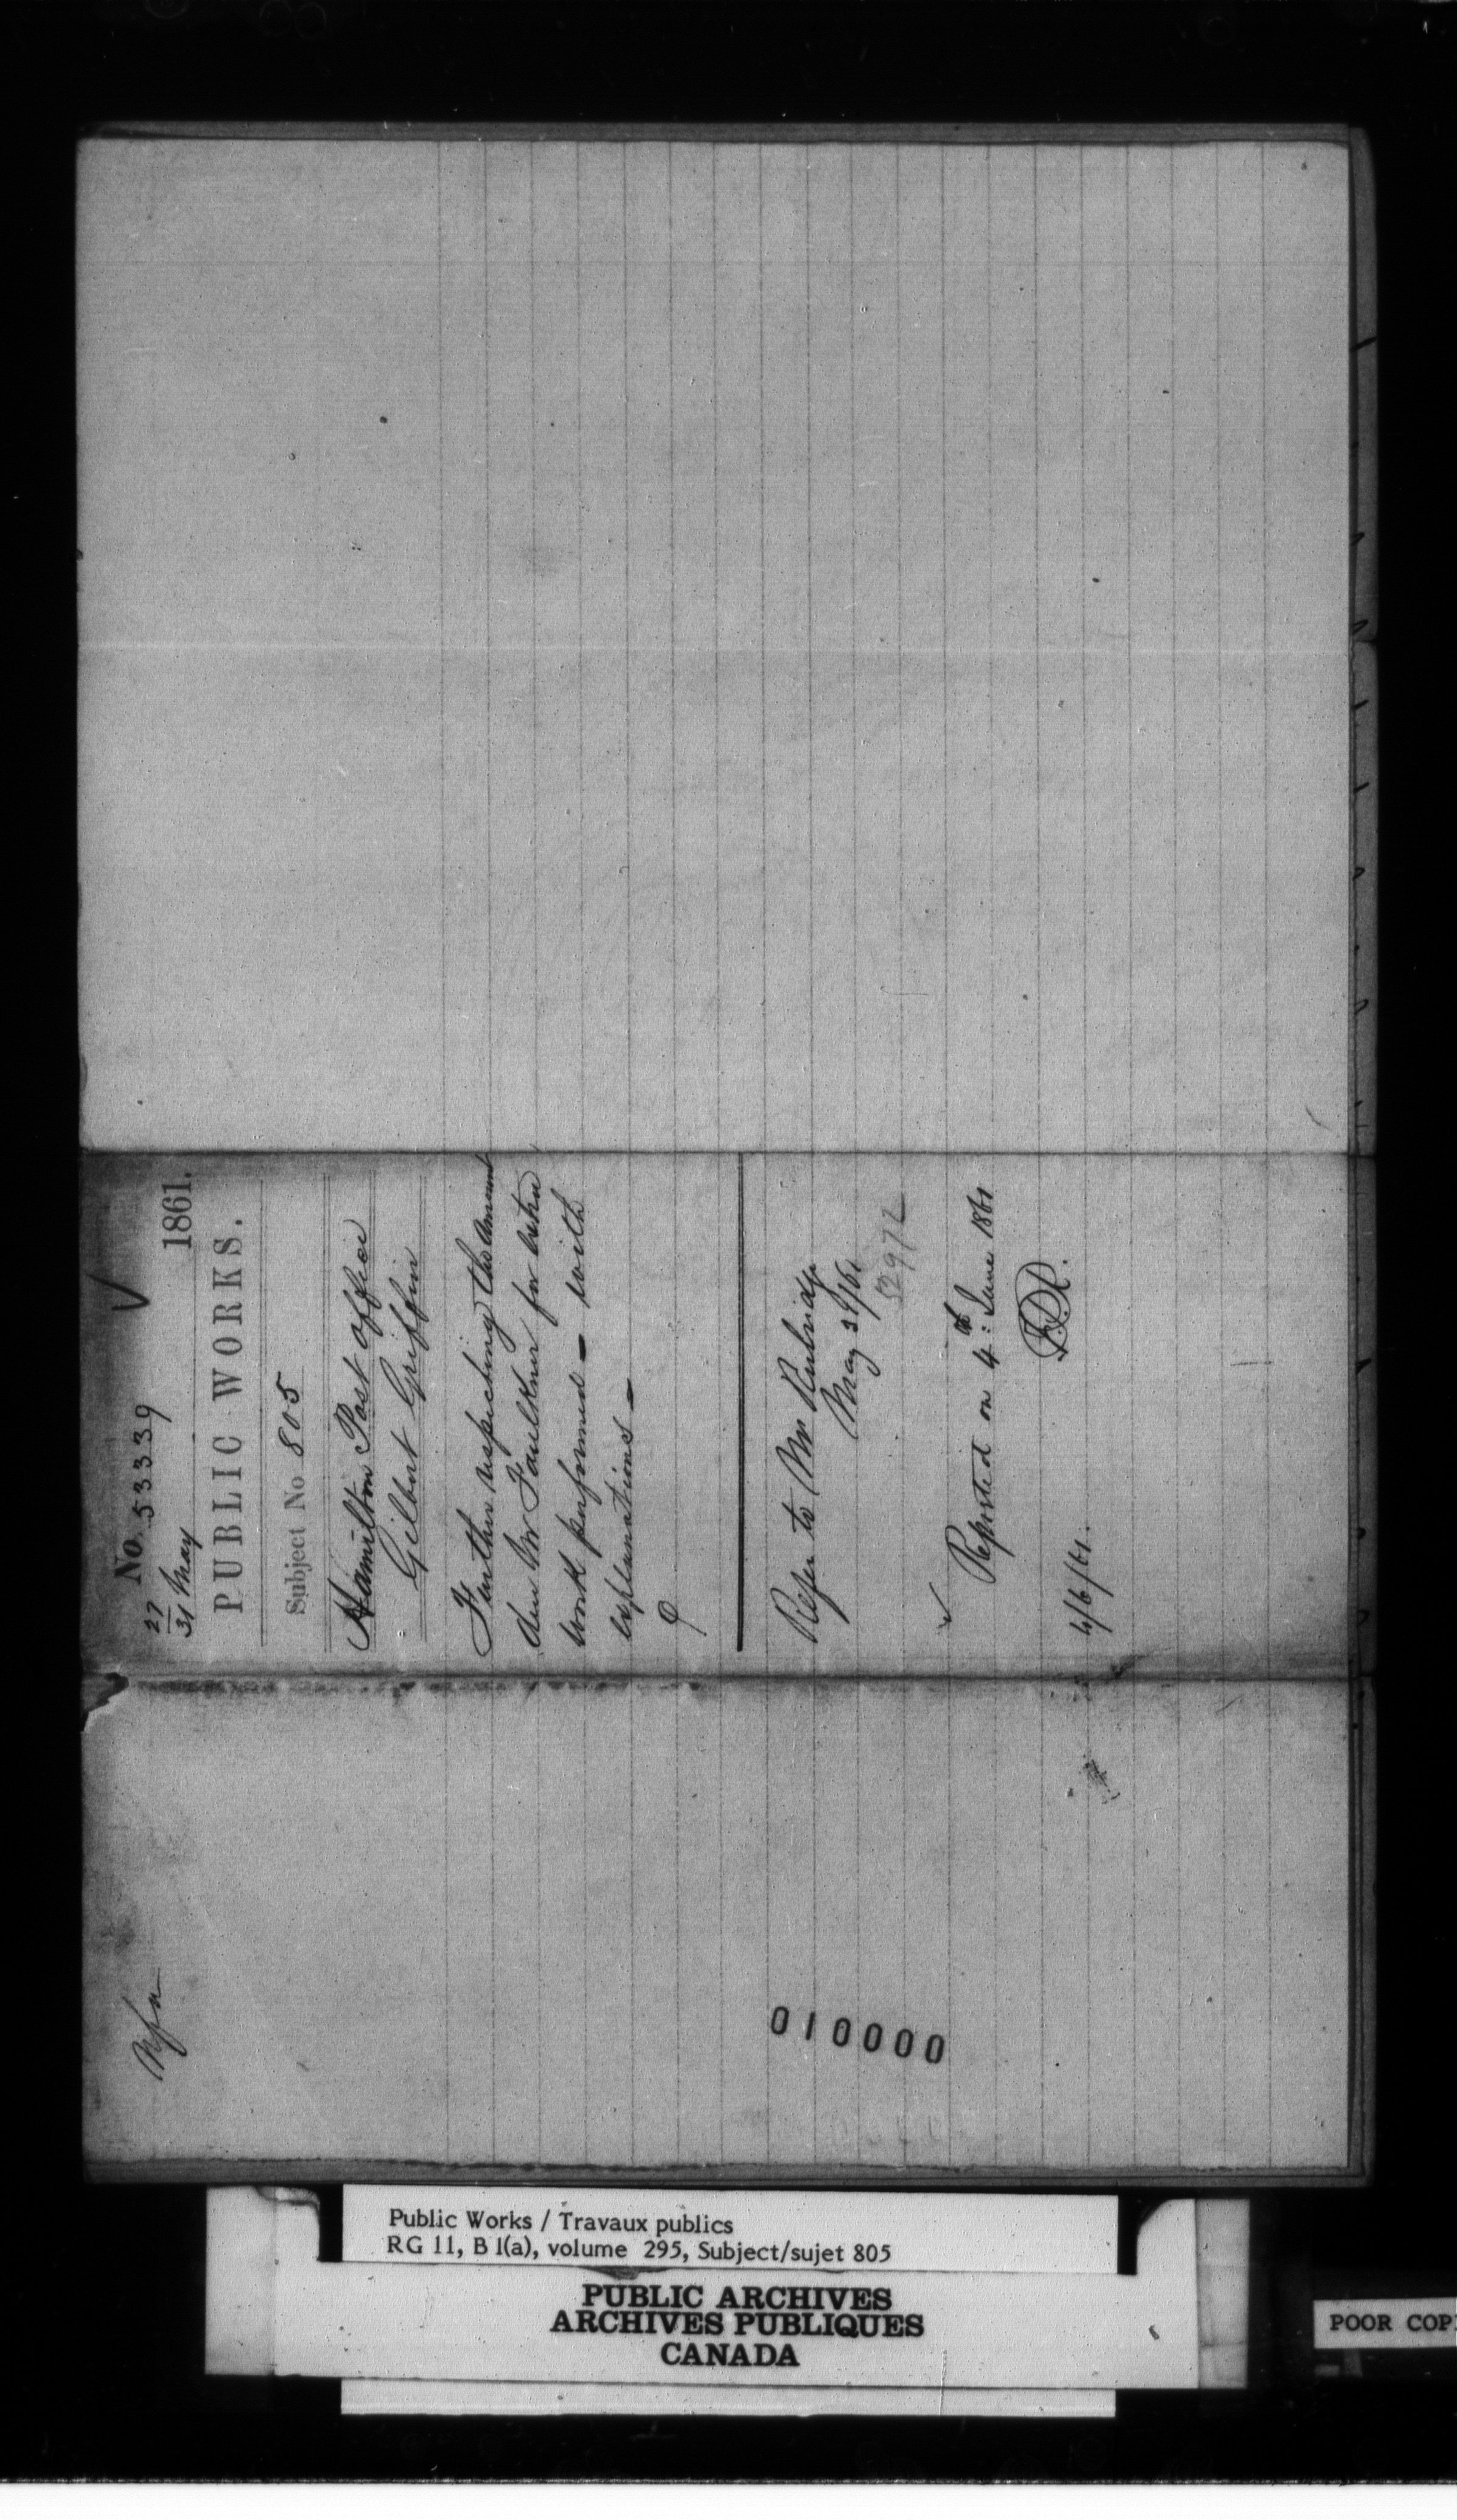 No. 53339
27
31 May 1861.
PUBLIC WORKS.
Subject No 805
Hamilton Post Office
Gilbert Griffin
Further respecting the amount
due Mr Faulkner for extra
work performed — with
explanations —
Refer to Mr Rubidge
May 31/61
52972
Reported on 4th: June 1861
F.P.R.
4/6/61.
010000
Public Works / Travaux publics
RG 11, B 1(a), volume 295, Subject/sujet 805
PUBLIC ARCHIVES
ARCHIVES PUBLIQUES
CANADA
POOR COP